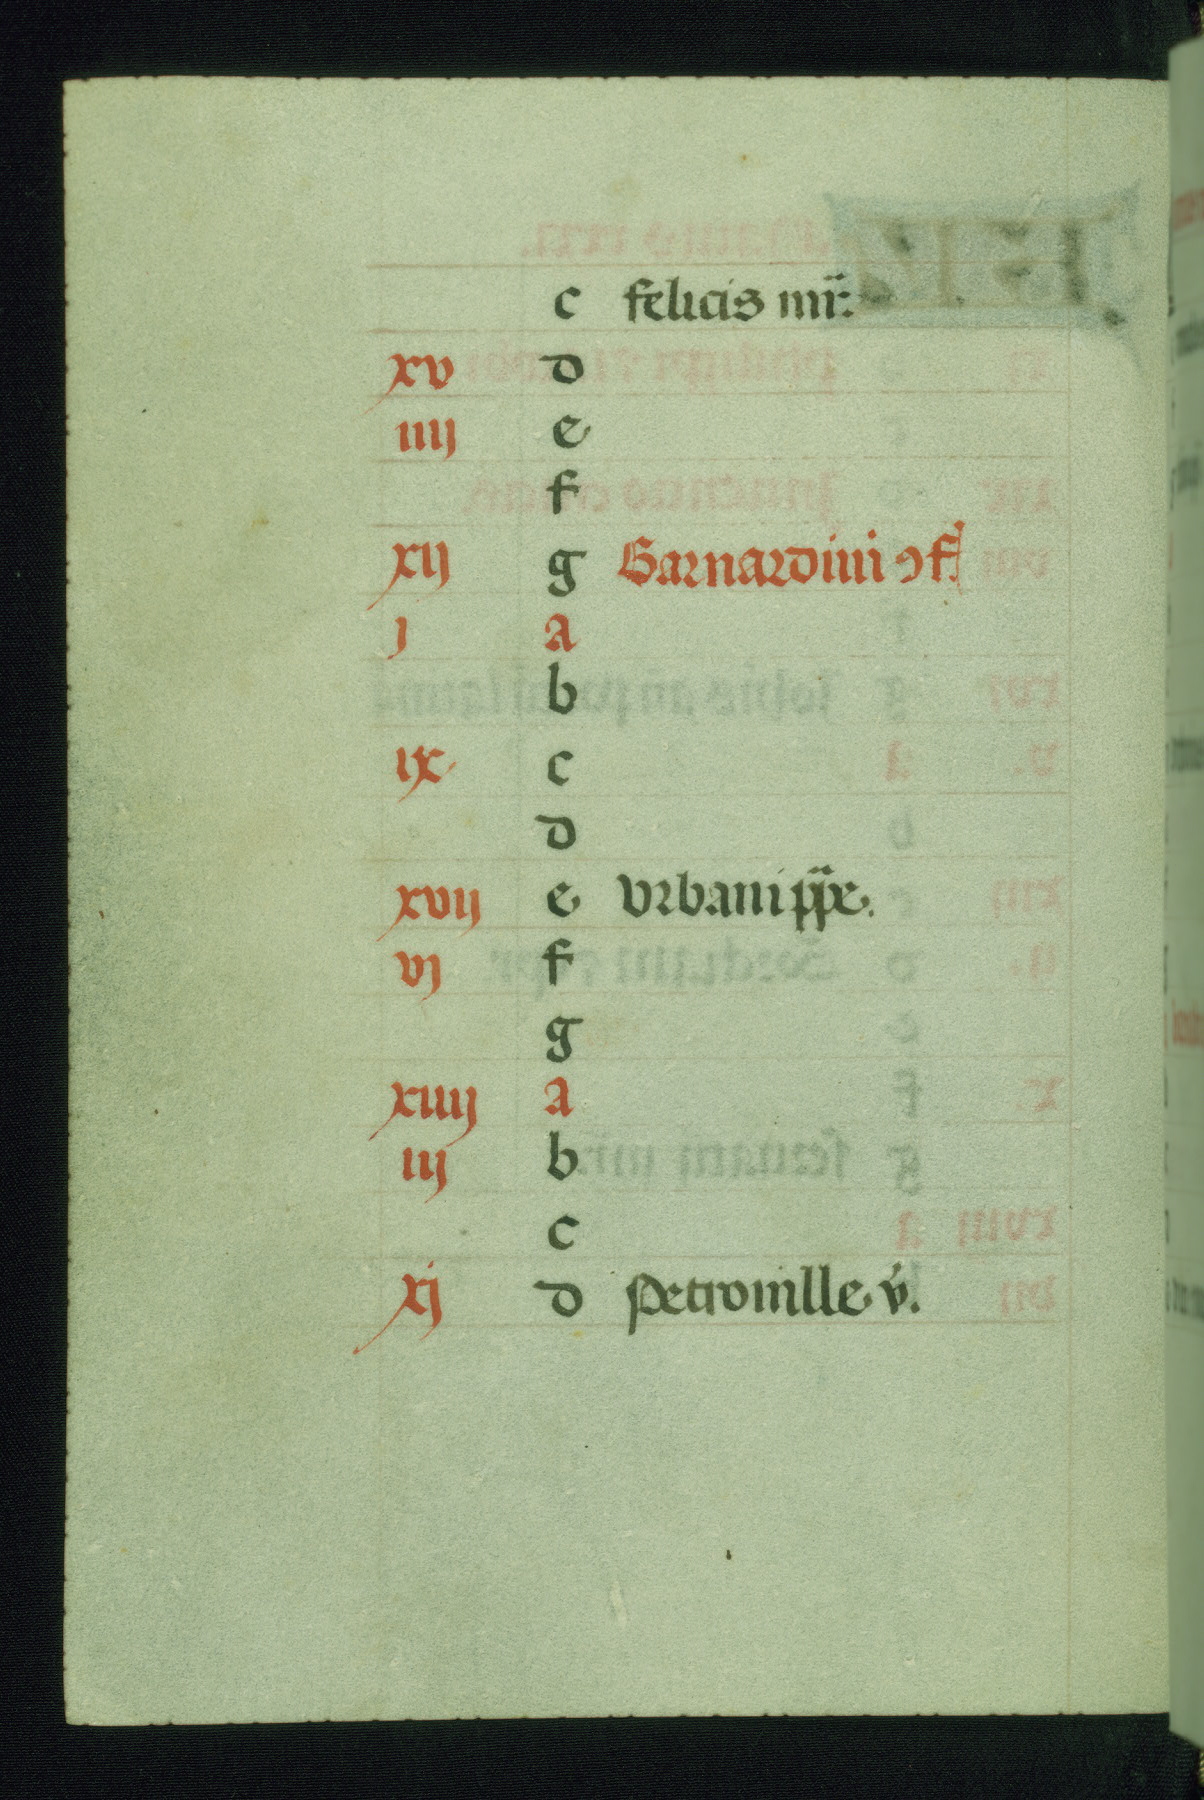 c felicis mr̄:
xv d
iiij e
f
xij g Barnardini ꝯf.
j a
b
ix c
d
xvij e vrbani pp̄e.
vj f
g
xiiij a
iij b
c
xj d Petronille v̄.